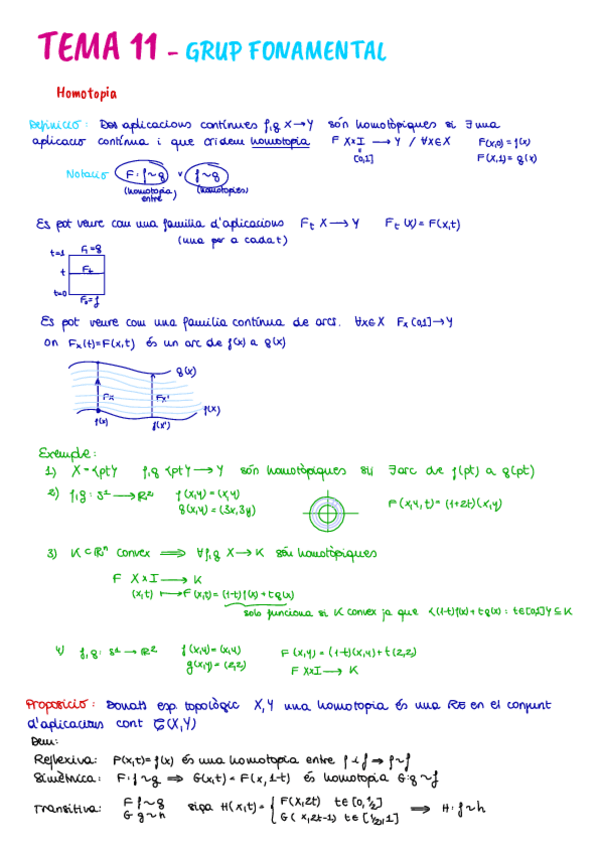 TEMA 11 - GRUP FONAMENTAL
Homotopia
Definició: Dos aplicacions contínues f,g X→Y són homotòpiques si ∃ una
aplicació contínua i que cridem homotopia F X×I → Y / ∀x∈X F(x,0) = f(x)
[0,1] F(x,1) = g(x)
Notació F: f~g v f~g
(homotopia entre) (homotopies)
Es pot veure com una família d'aplicacions F_t X → Y F_t (x) = F(x,t)
(una per a cada t)
t=1 F₁=g
t F_t
t=0 F₀=f
Es pot veure com una família contínua de arcs. ∀x∈X F_x [0,1]→Y
on F_x(t)=F(x,t) és un arc de f(x) a g(x)
g(x)
F_x F_x'
f(x)
f(x) f(x')
Exemple:
1) X = {pt} f,g {pt} → Y són homotòpiques sii ∃ arc de f(pt) a g(pt)
2) f,g: S¹ → R² f(x,y) = (x,y)
g(x,y) = (3x,3y)
F(x,y,t) = (1+2t)(x,y)
3) K⊂Rⁿ convex ⟹ ∀f,g X→K són homotòpiques
F X×I → K
(x,t) ↦ F(x,t) = (1-t)f(x)+tg(x)
solo funciona si K convex ja que {(1-t)f(x)+tg(x): t∈[0,1]} ⊆ K
4) f,g: S¹ → R² f(x,y) = (x,y) F(x,y) = (1-t)(x,y)+t(2,2)
g(x,y) = (2,2) F X×I → K
Proposició: Donats esp. topològic X,Y una homotopia és una RE en el conjunt
d'aplicacions cont C(X,Y)
Dem:
Reflexiva: F(x,t)=f(x) és una homotopia entre f i f ⇒ f~f
Simètrica: F: f~g ⇒ G(x,t) = F(x,1-t) és homotopia G: g~f
Transitiva: F f~g siga H(x,t) = { F(x,2t) t∈[0,1/2] ⟹ H: f~h
G g~h G(x,2t-1) t∈[1/2,1]